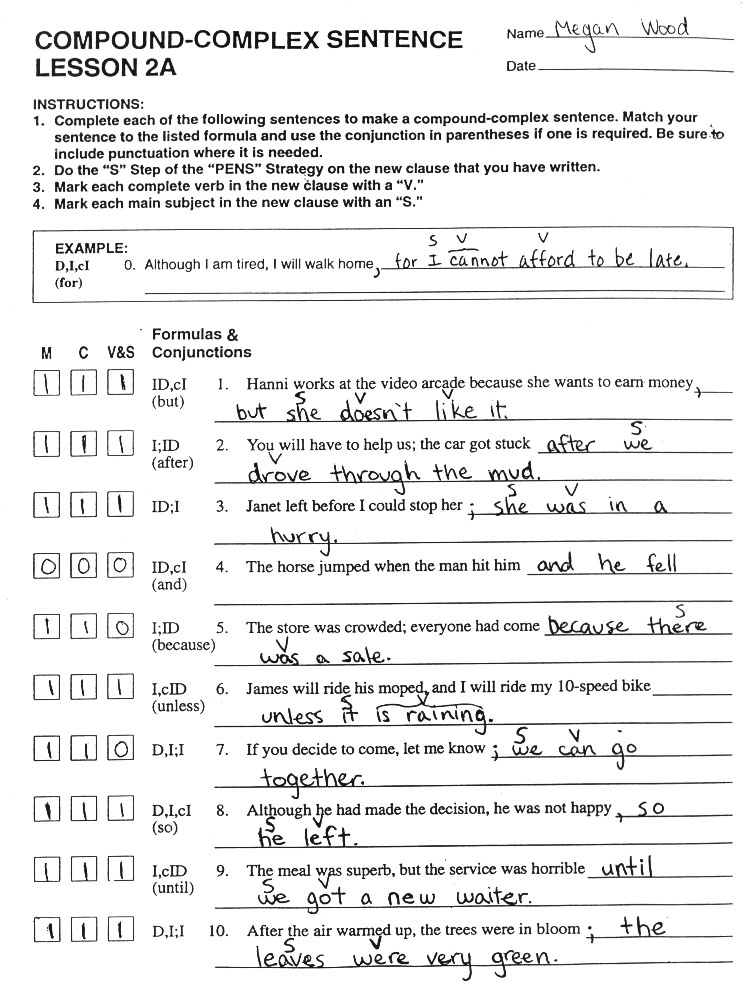 COMPOUND-COMPLEX SENTENCE
LESSON 2A
Name Megan Wood
Date
INSTRUCTIONS:
1. Complete each of the following sentences to make a compound-complex sentence. Match your
sentence to the listed formula and use the conjunction in parentheses if one is required. Be sure to
include punctuation where it is needed.
2. Do the “S” Step of the “PENS” Strategy on the new clause that you have written.
3. Mark each complete verb in the new clause with a “V.”
4. Mark each main subject in the new clause with an “S.”
S V V
EXAMPLE:
D,I,cI 0. Although I am tired, I will walk home, for I cannot afford to be late.
(for)
Formulas &
M C V&S Conjunctions
1 1 1 ID,cI 1. Hanni works at the video arcade because she wants to earn money,
S V V
(but) but she doesn't like it.
S
1 1 1 I;ID 2. You will have to help us; the car got stuck after we
V
(after) drove through the mud.
S V
1 1 1 ID;I 3. Janet left before I could stop her ; she was in a
hurry.
0 0 0 ID,cI 4. The horse jumped when the man hit him and he fell
(and)
S
1 1 0 I;ID 5. The store was crowded; everyone had come because there
V
(because) was a sale.
1 1 1 I,cID 6. James will ride his moped, and I will ride my 10-speed bike
S V
(unless) unless it is raining.
S V
1 1 0 D,I;I 7. If you decide to come, let me know ; we can go
together.
1 1 1 D,I,cI 8. Although he had made the decision, he was not happy , so
S V
(so) he left.
1 1 1 I,cID 9. The meal was superb, but the service was horrible until
S V
(until) we got a new waiter.
1 1 1 D,I;I 10. After the air warmed up, the trees were in bloom ; the
S V
leaves were very green.